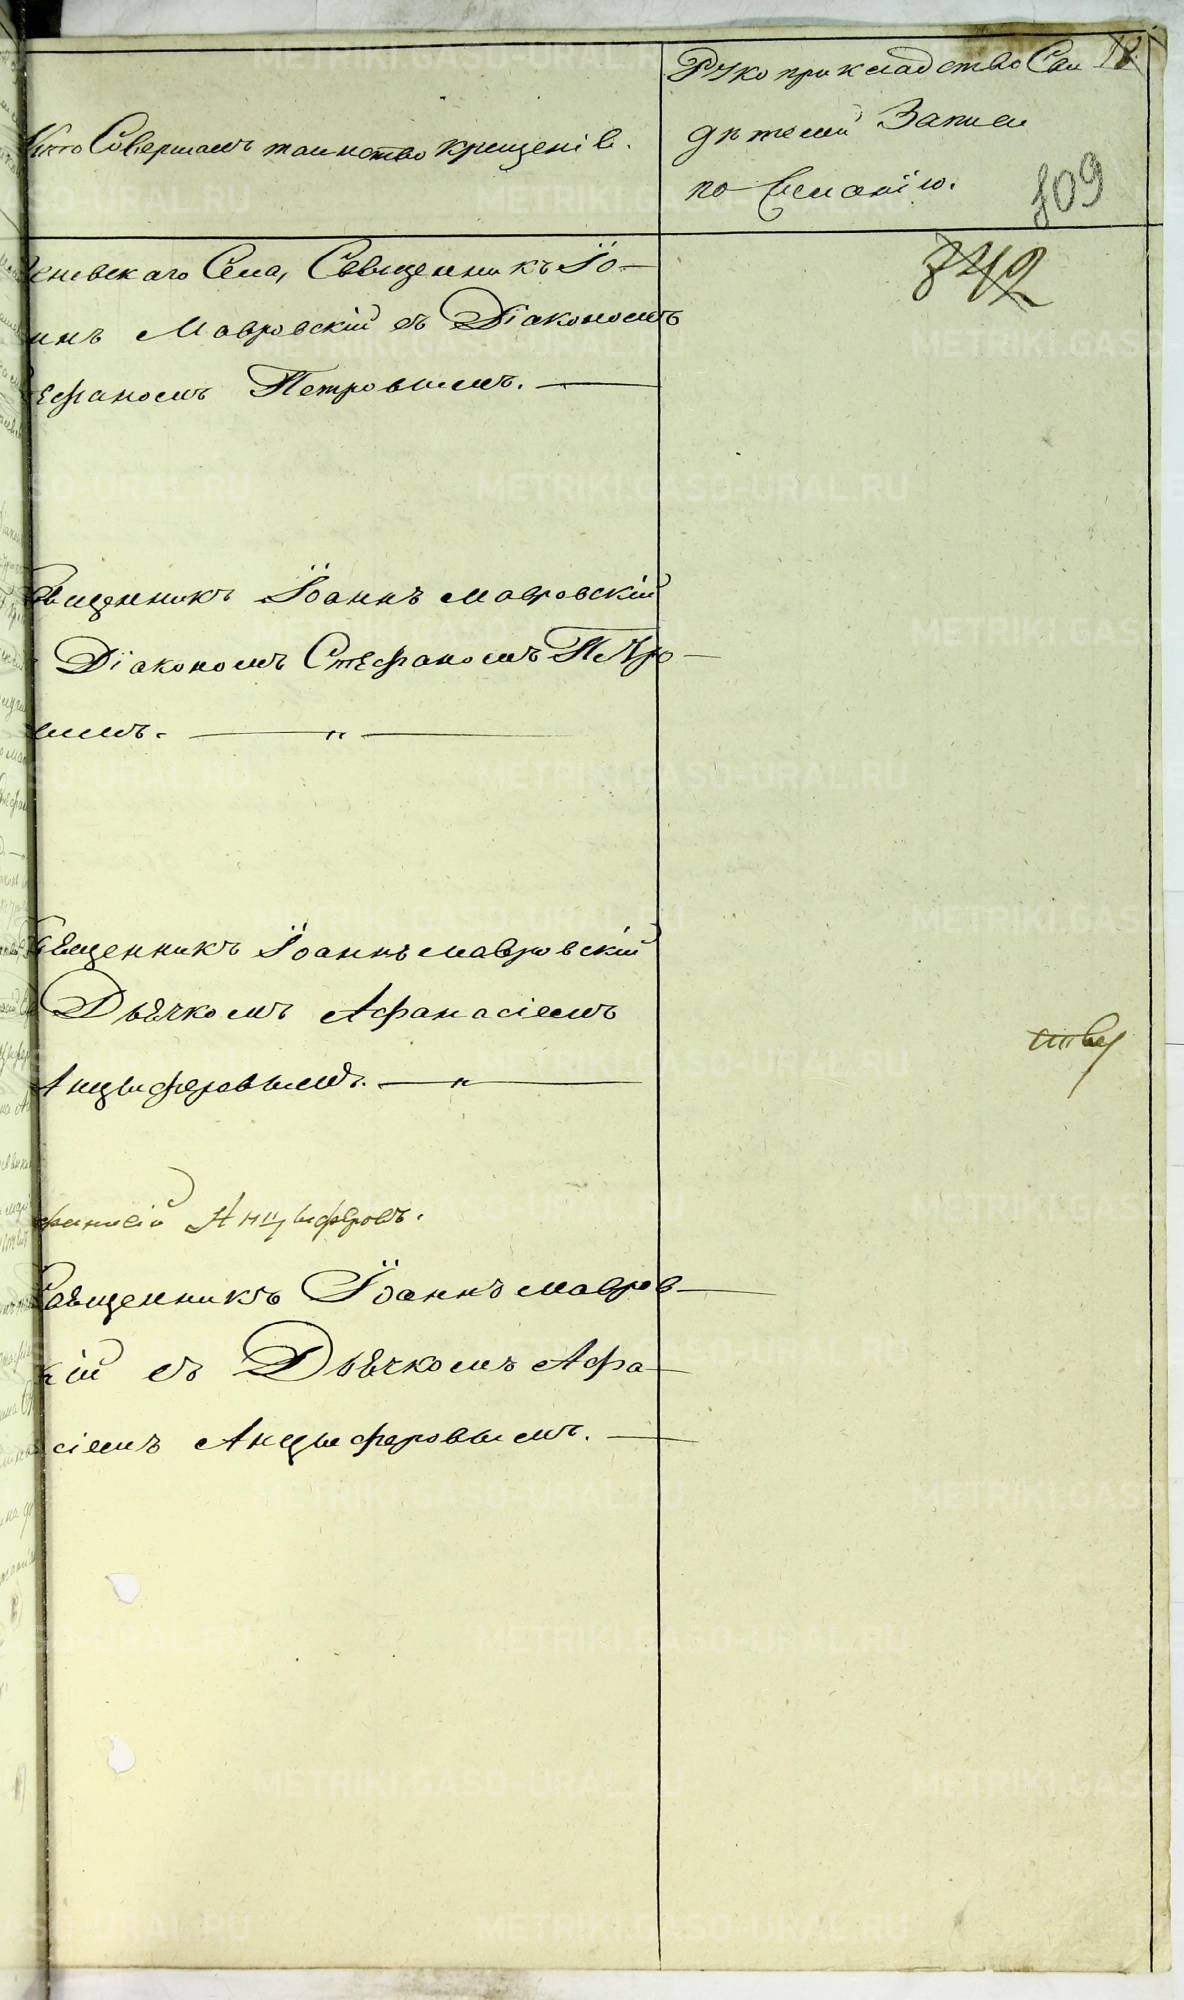 Кто Совершалъ таинство крещенiе.
Рукоприкладство Сви
18
дѣтелей Записи
по желанiю.
809
342
еневскаго Села, Священникъ Iо-
аннъ Мавровскiй съ Дiакономъ
ефаномъ Петровымъ.
Священникъ Iоаннъ Мавровскiй
Дiакономъ Стефаномъ Петро-
вымъ.
Священникъ Iоаннъ Мавровскiй
Дьячкомъ Афанасiемъ
Анцыферовымъ.
ству
фанасiй Анцыферовъ.
Священникъ Iоаннъ Мавров-
скiй съ Дьячкомъ Афа-
сiемъ Анцыферовымъ.
METRIKI.GASO-URAL.RU